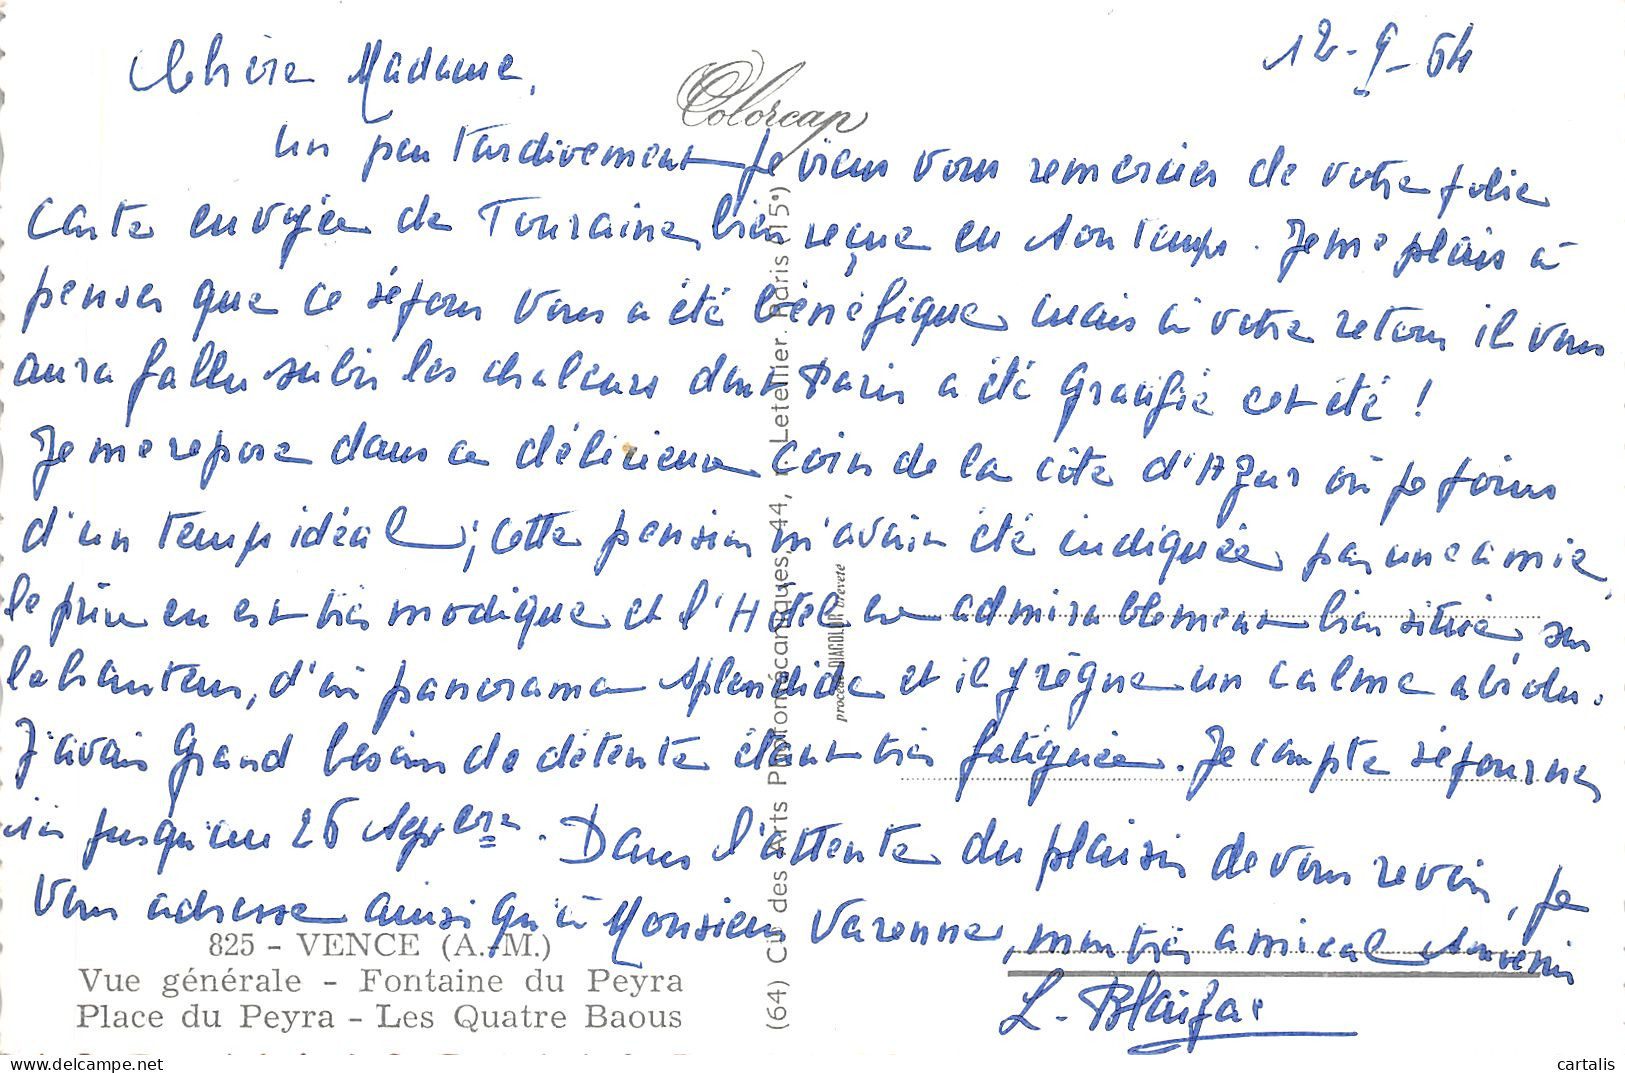 12-9-64
Chère Madame,
Colorcap
Un peu tardivement je viens vous remercier de votre jolie
carte envoyée de Touraine, bien reçue en son temps. Je me plais à
penser que ce séjour vous a été bénéfique mais à votre retour il vous
aura fallu subir les chaleurs dont Paris a été gratifié cet été !
Je me repose dans ce délicieux coin de la côte d'Azur où je jouis
d'un temps idéal ; cette pension m'avait été indiquée par une amie,
le prix en est très modique et l'Hôtel est admirablement bien situé, sur
la hauteur, d'où panorama splendide et il y règne un calme absolu.
J'avais grand besoin de détente étant très fatiguée. Je compte séjourner
ici jusqu'au 26 Septembre. Dans l'attente du plaisir de vous revoir, je
vous adresse ainsi qu'à Monsieur Varenne, mon très amical souvenir
L. Blaizac
825 - VENCE (A.-M.)
Vue générale - Fontaine du Peyra
Place du Peyra - Les Quatre Baous
(64) Cie des Arts Photomécaniques, 44, r. Letellier. Paris (15e)
procédé DIAGOLOR breveté
www.delcampe.net
cartalis